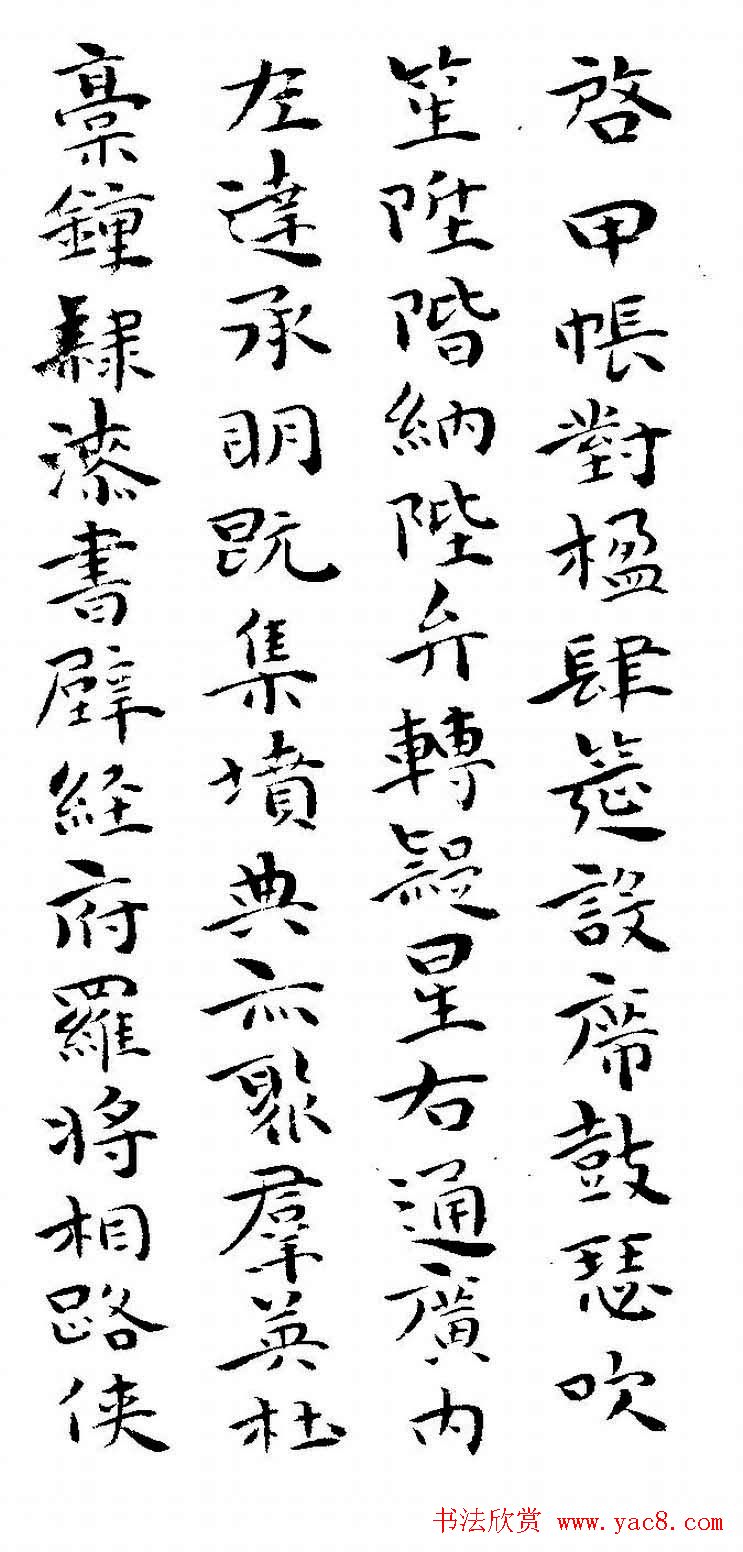 啓甲帳對楹肆筵設席鼓瑟吹
笙陞階納陛弁轉疑星右通廣內
左達承明既集墳典亦聚羣英杜
稾鐘隸漆書壁經府羅將相路俠
书法欣赏 www.yac8.com